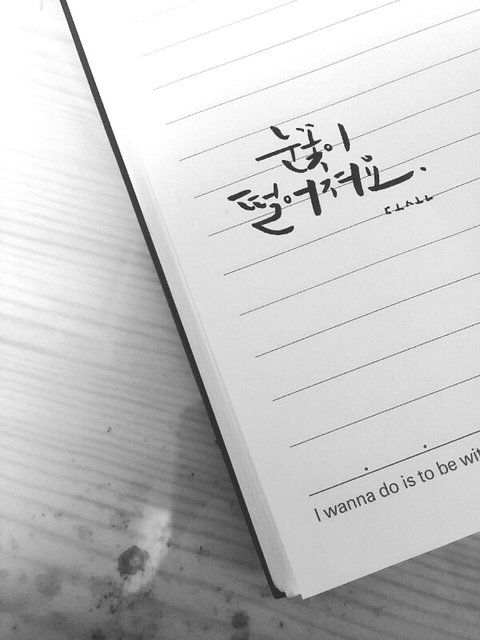 눈꽃이
떨어져요.
I wanna do is to be wit